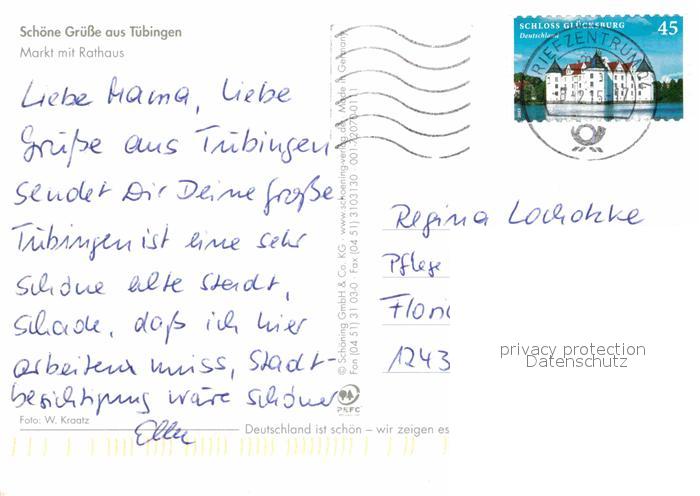 Schöne Grüße aus Tübingen
Markt mit Rathaus
Liebe Mama, Liebe
Grüße aus Tübingen
sendet Dir Deine Große
Tübingen ist eine sehr
schöne alte Stadt,
schade, daß ich hier
arbeiten muss, Stadt-
besichtigung wäre schöner
Foto: W. Kraatz
Deutschland ist schön – wir zeigen es
© Schöning GmbH & Co. KG · www.schoening-verlag.de · Made in Germany
Fon (04 51) 31 03-0 · Fax (04 51) 3103130 · 001
PEFC
SCHLOSS GLÜCKSBURG
45
Deutschland
BRIEFZENTRUM
Regina
Pflege
Flori
1243
privacy protection
Datenschutz